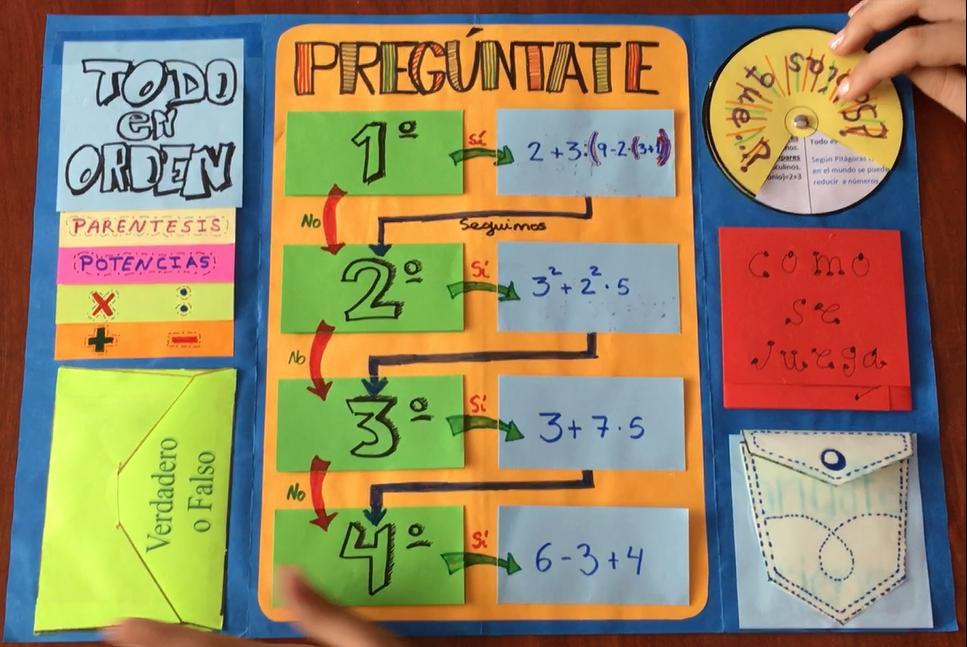 TODO
en
ORDEN
PARENTESIS
POTENCIAS
x :
+ -
Verdadero
o Falso
PREGÚNTATE
1º
Sí
2 + 3:(9-2·(3+1))
No
Seguimos
2º
Sí
3² + 2² · 5
No
3º
Sí
3 + 7 · 5
No
4º
Sí
6 - 3 + 4
Todo es
Según Pitágoras
en el mundo se puede
reducir a números.
como
se
Juega